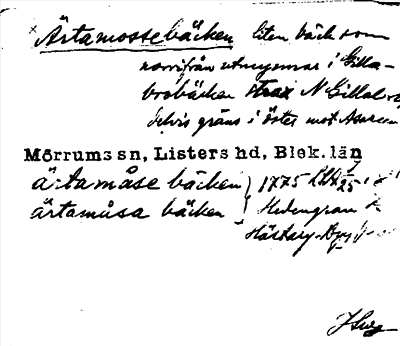 Ärtamossebäcken liten bäck som
norrifrån utmynnar i Gilla-
brobäcken strax N Gillabro
delvis gräns i öster mot Asarum
Mörrums sn, Listers hd, Blek. län
ärtamåse bäcken } 1775
ärtamåsa bäcken } Hedengran